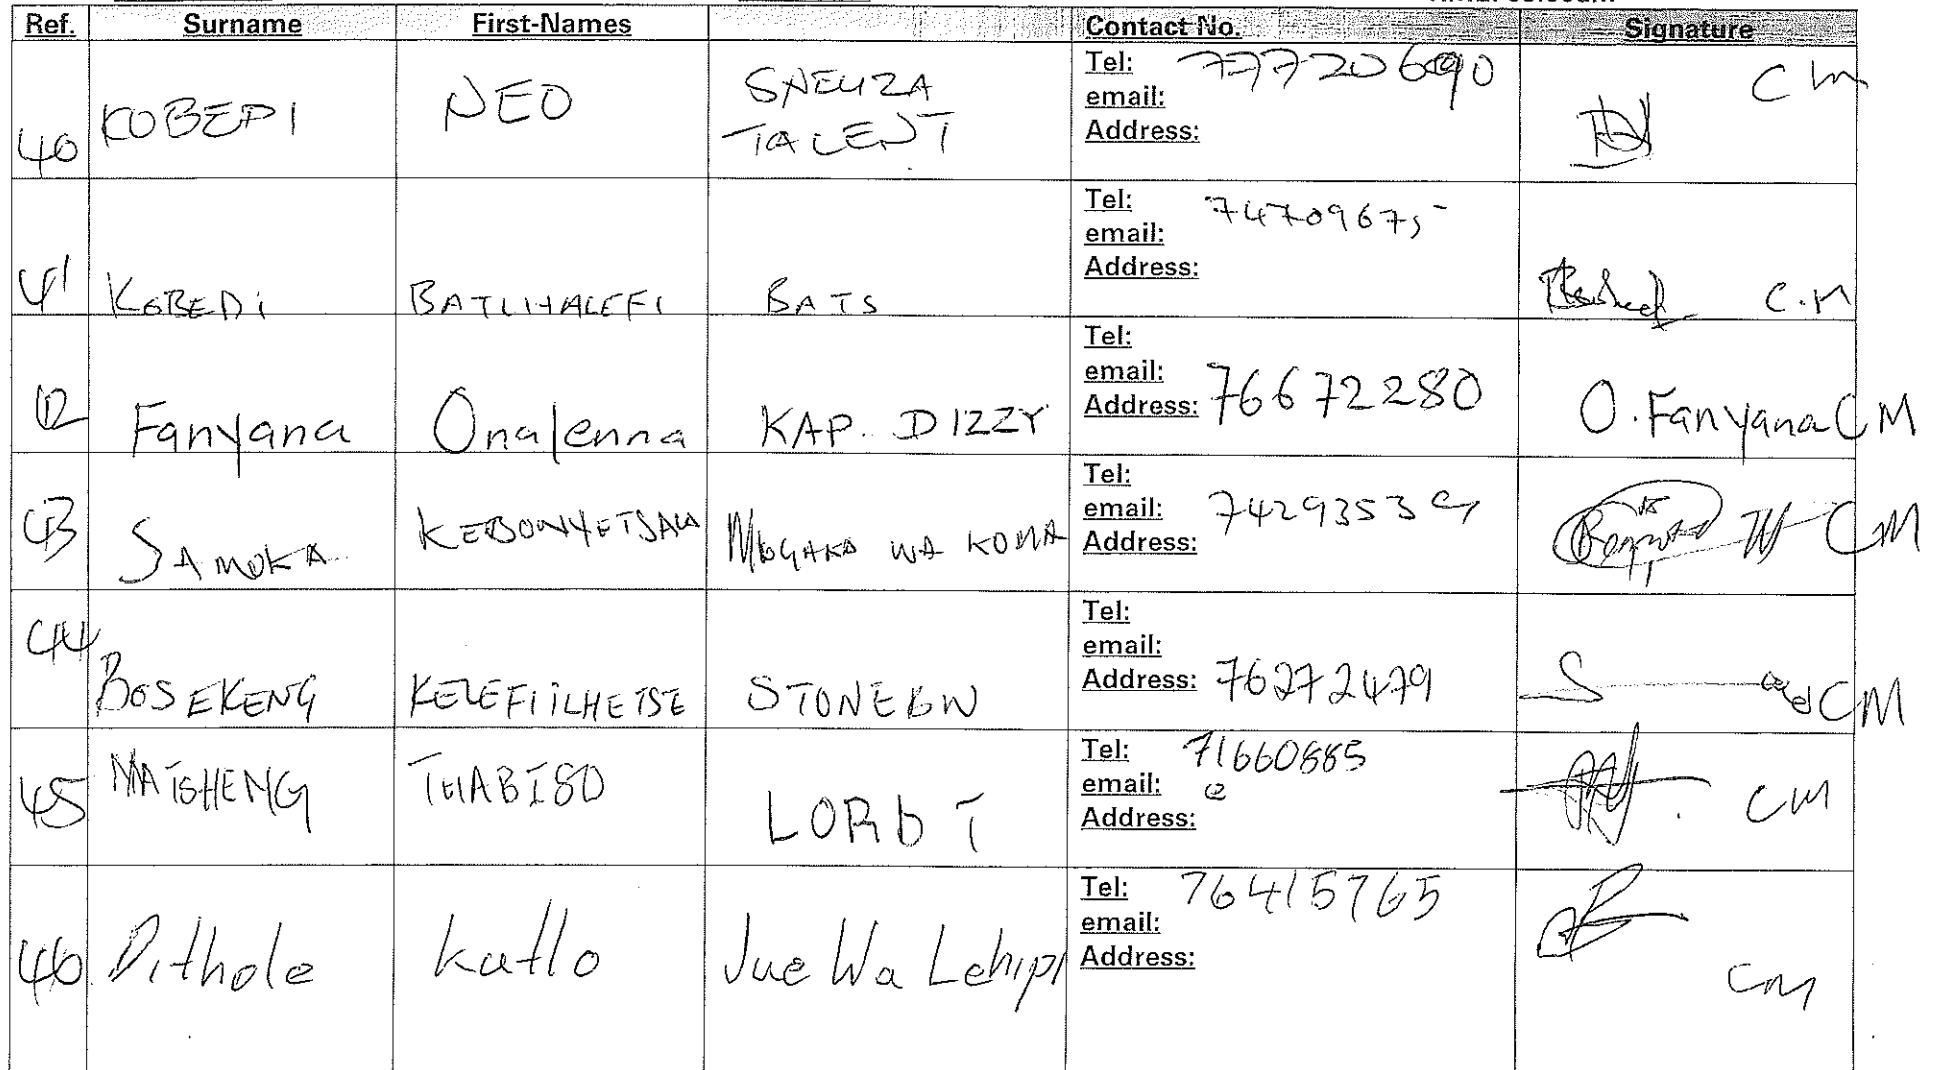 Ref. Surname First-Names Contact No. Signature
40 KOBEDI NEO SNEUZA TALENT Tel: 777206090 CM
email:
Address:
41 KOBEDI BATLHALEFI BATS Tel: 74709675 C.M
email:
Address:
42 Fanyana Onalenna KAP. DIZZY Tel:
email: 76672280 O. Fanyana CM
Address:
43 SAMOKA KEBONYETSALA MOGAKA WA KOMA Tel:
email: 74293539 CM
Address:
44 BOSEKENG KELEFIILHETSE STONEBW Tel:
email:
Address: 76272479 CM
45 MATSHENG THABISO LORD T Tel: 71660885 CM
email:
Address:
46 Dithole Katlo Jue Wa Lehipi Tel: 76415765
email:
Address: CM